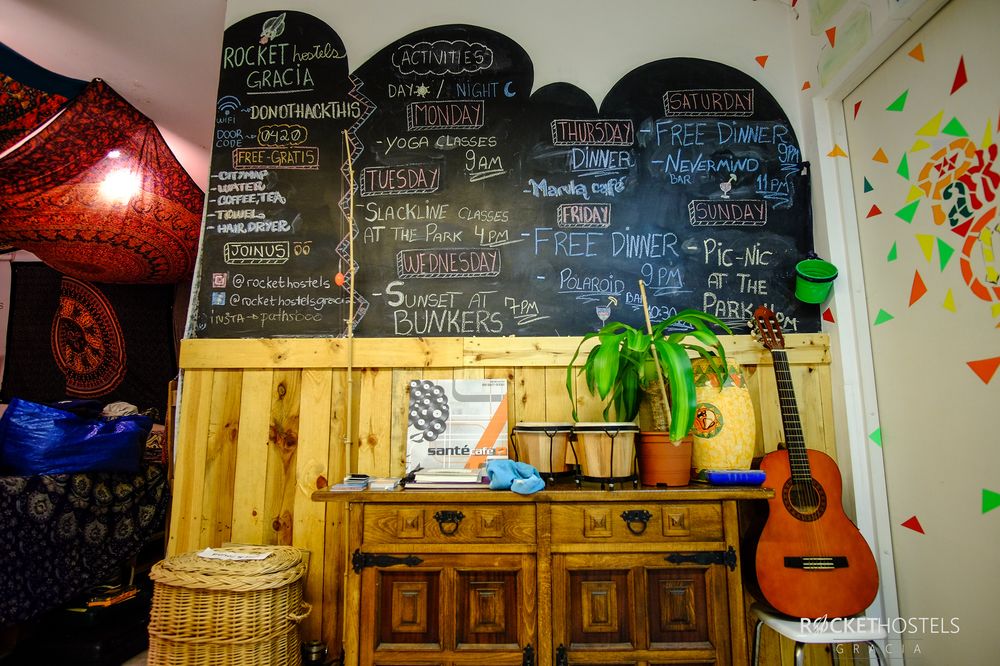 ROCKET hostels
GRACIA
WIFI DONOTHACKTHIS
DOOR CODE 0420
FREE-GRATIS
- CITYMAP
- WATER
- COFFEE, TEA
- TOWEL
- HAIRDRYER
JOIN US
@rockethostels
@rockethostelsgracia
(ACTIVITIES)
DAY / NIGHT
MONDAY
- YOGA CLASSES
9AM
TUESDAY
SLACKLINE CLASSES
AT THE PARK 4PM
WEDNESDAY
- SUNSET AT
BUNKERS 7PM
THURSDAY
DINNER
- Marula café
FRIDAY
- FREE DINNER
9PM
- POLAROID BAR
10:30
SATURDAY
- FREE DINNER
9PM
- NEVERMIND
BAR 11PM
SUNDAY
- PIC-NIC
AT THE
PARK
santé café
ROCKETHOSTELS
GRACIA